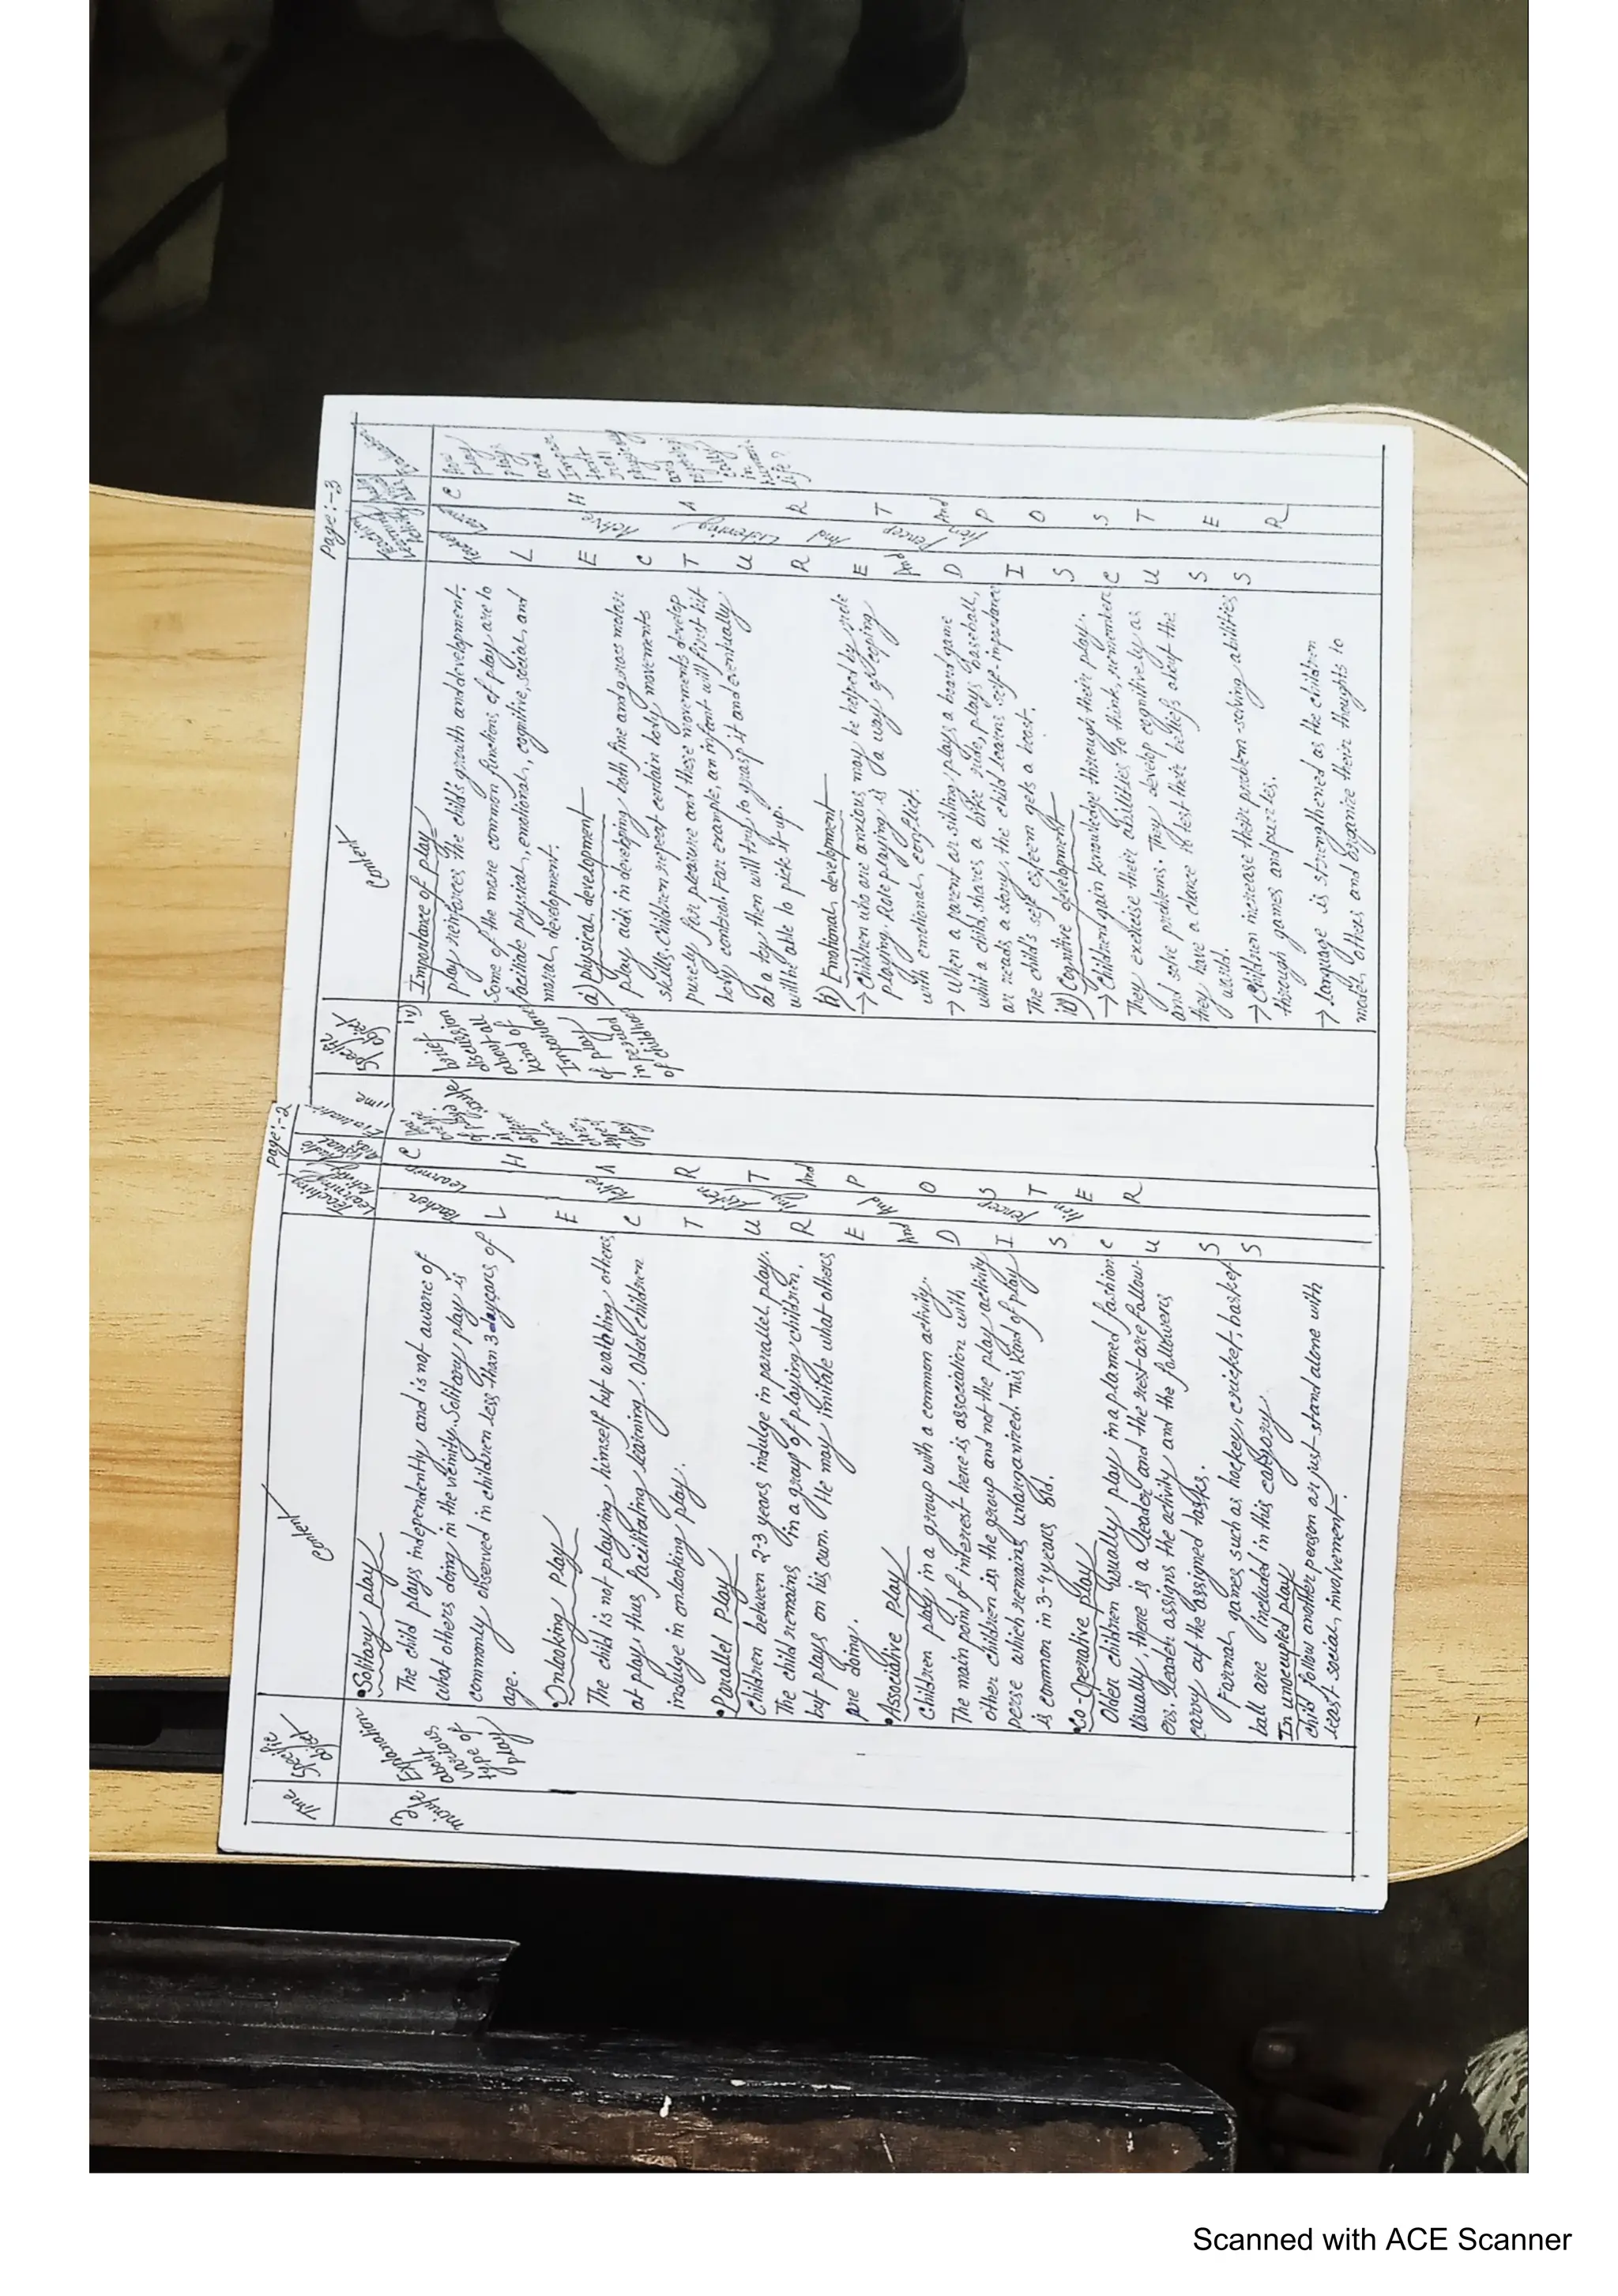 Page:-2
Time
Specific object
Content
Teaching Learning Activity
Audio Visual Aids
Evaluation
3 minute
Explanation
about
various
type of
play
•Solitary play
The child plays independently and is not aware of
what others doing in the vicinity. Solitary play is
commonly observed in children less than 3 years of
age.
•Onlooking play
The child is not playing himself but watching others
at play, thus facilitating learning. Older children
indulge in onlooking play.
•Parallel play
Children between 2-3 years indulge in parallel play.
The child remains in a group of playing children,
but plays on his own. He may imitate what others
are doing.
•Associative play
Children play in a group with a common activity.
The main point of interest here is association with
other children in the group and not the play activity
perse which remains unorganized. This kind of play
is common in 3-4 years old.
•Co-Operative play
Older children usually play in a planned fashion
usually, there is a leader and the rest are follow-
ers. Leader assigns the activity and the followers
carry out the assigned tasks.
Formal games such as hockey, cricket, basket
ball are included in this category.
In unoccupied play
child follow another person or just stand alone with
least social involvement.
Teacher
L
E
C
T
U
R
E
And
D
I
S
C
U
S
S
Learner
Active
Listen
ing
And
Percep
tion
C
H
A
R
T
And
P
O
S
T
E
R
Page:-3
Time
Specific object
Content
Teaching Learning Activity
iv)
brief
discussion
about all
kind of
Importance
of play
in period
of childhood
Importance of play
play reinforces the child's growth and development.
Some of the more common functions of play are to
facilitate physical, emotional, cognitive, social, and
moral development.
a) physical development
play aids in developing both fine and gross motor
skills. Children repeat certain body movements
purely for pleasure and these movements develop
body control. For example, an infant will first hit
at a toy, then will try to grasp it and eventually
will be able to pick it up.
b) Emotional development
→ Children who are anxious may be helped by role
playing. Role playing is a way of coping
with emotional conflict.
→ When a parent or sibling plays a board game
with a child, shares a bike ride, plays baseball,
or reads a story, the child learns self-importance
The child's self esteem gets a boost.
Cognitive development
→ Children gain knowledge through their play.
They exercise their abilities to think, remember
and solve problems. They develop cognitively as
they have a chance to test their beliefs about the
world.
→ Children increase their problem-solving abilities
through games and puzzles.
→ Language is strengthened as the children
model others and organize their thoughts to
Teacher
L
E
C
T
U
R
E
And
D
I
S
C
U
S
S
Active
Listening
And
Percep
tion
C
H
A
R
T
And
P
O
S
T
E
R